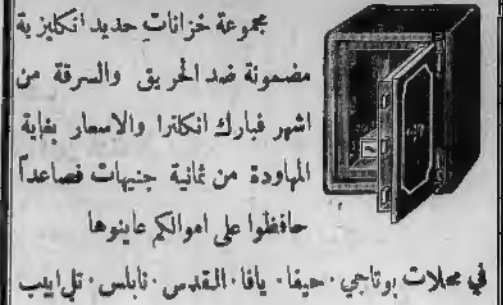 مجموعة خزانات حديد انكليزية
مضمونة ضد الحريق والسرقة من
اشهر فبارك انكلترا والاسعار بغاية
المهاودة من ثمانية جنيهات فصاعداً
حافظوا على اموالكم عاينوها
في محلات بوتاجي · حيفا · يافا · القدس · نابلس · تل ابيب